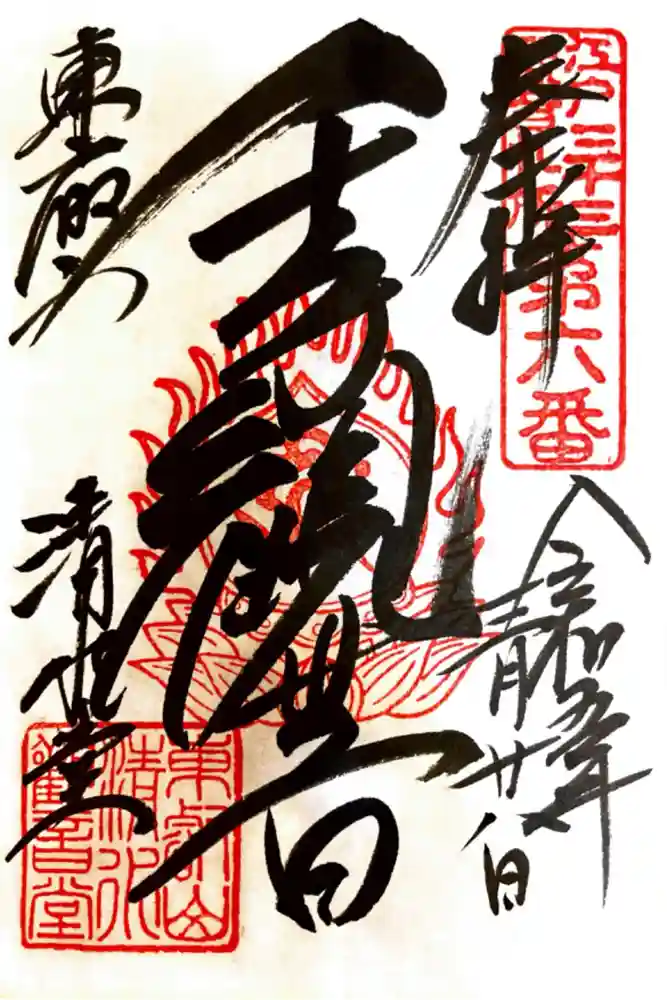 江戸三十三
第六番
奉拝
令和五年
千手観世音
東叡山
清水堂
東叡山
清水
観音堂